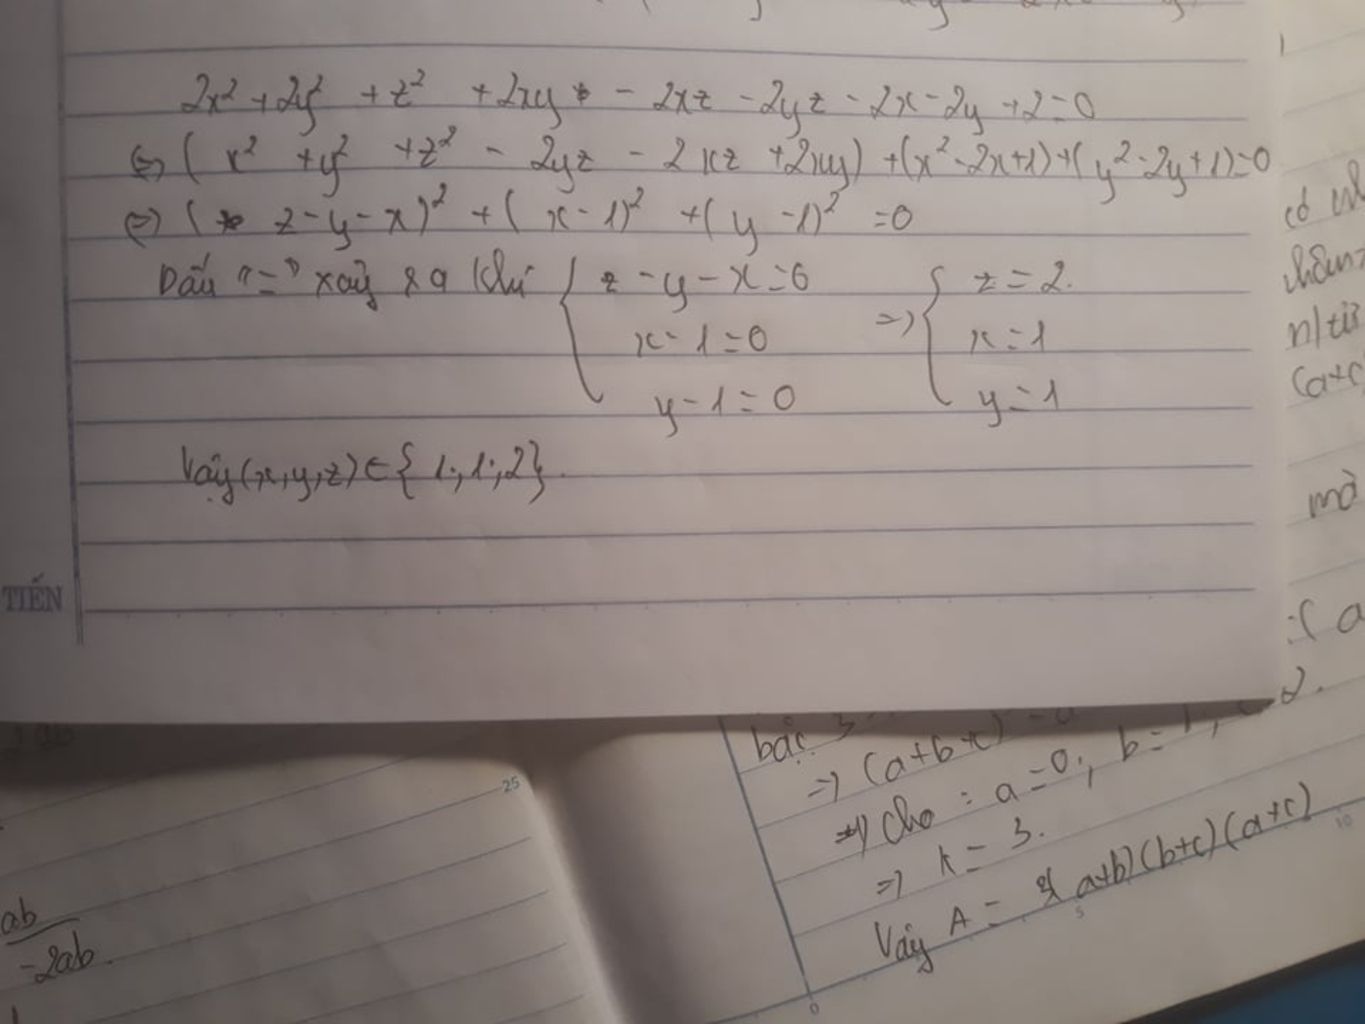 2x² + 2y² + z² + 2xy - 2xz - 2yz - 2x - 2y + 2 = 0
⇔ ( x² + y² + z² - 2yz - 2xz + 2xy ) + (x² - 2x + 1) + ( y² - 2y + 1) = 0
⇔ ( z - y - x )² + ( x - 1)² + ( y - 1)² = 0
Dấu "=" xảy ra khi { z - y - x = 0 => { z = 2.
x - 1 = 0 x = 1
y - 1 = 0 y = 1
Vậy (x, y, z) ∈ { 1; 1; 2}.
TIẾN
có
n/tử
(a+c
mà
:( a
2.
25
bậc 3
=> (a+b+c)³ - a
=> Cho : a = 0; b = 1,
=> k = 3.
Vậy A = 3( a+b) (b+c) (a+c)
10
5
0
ab
-2ab.